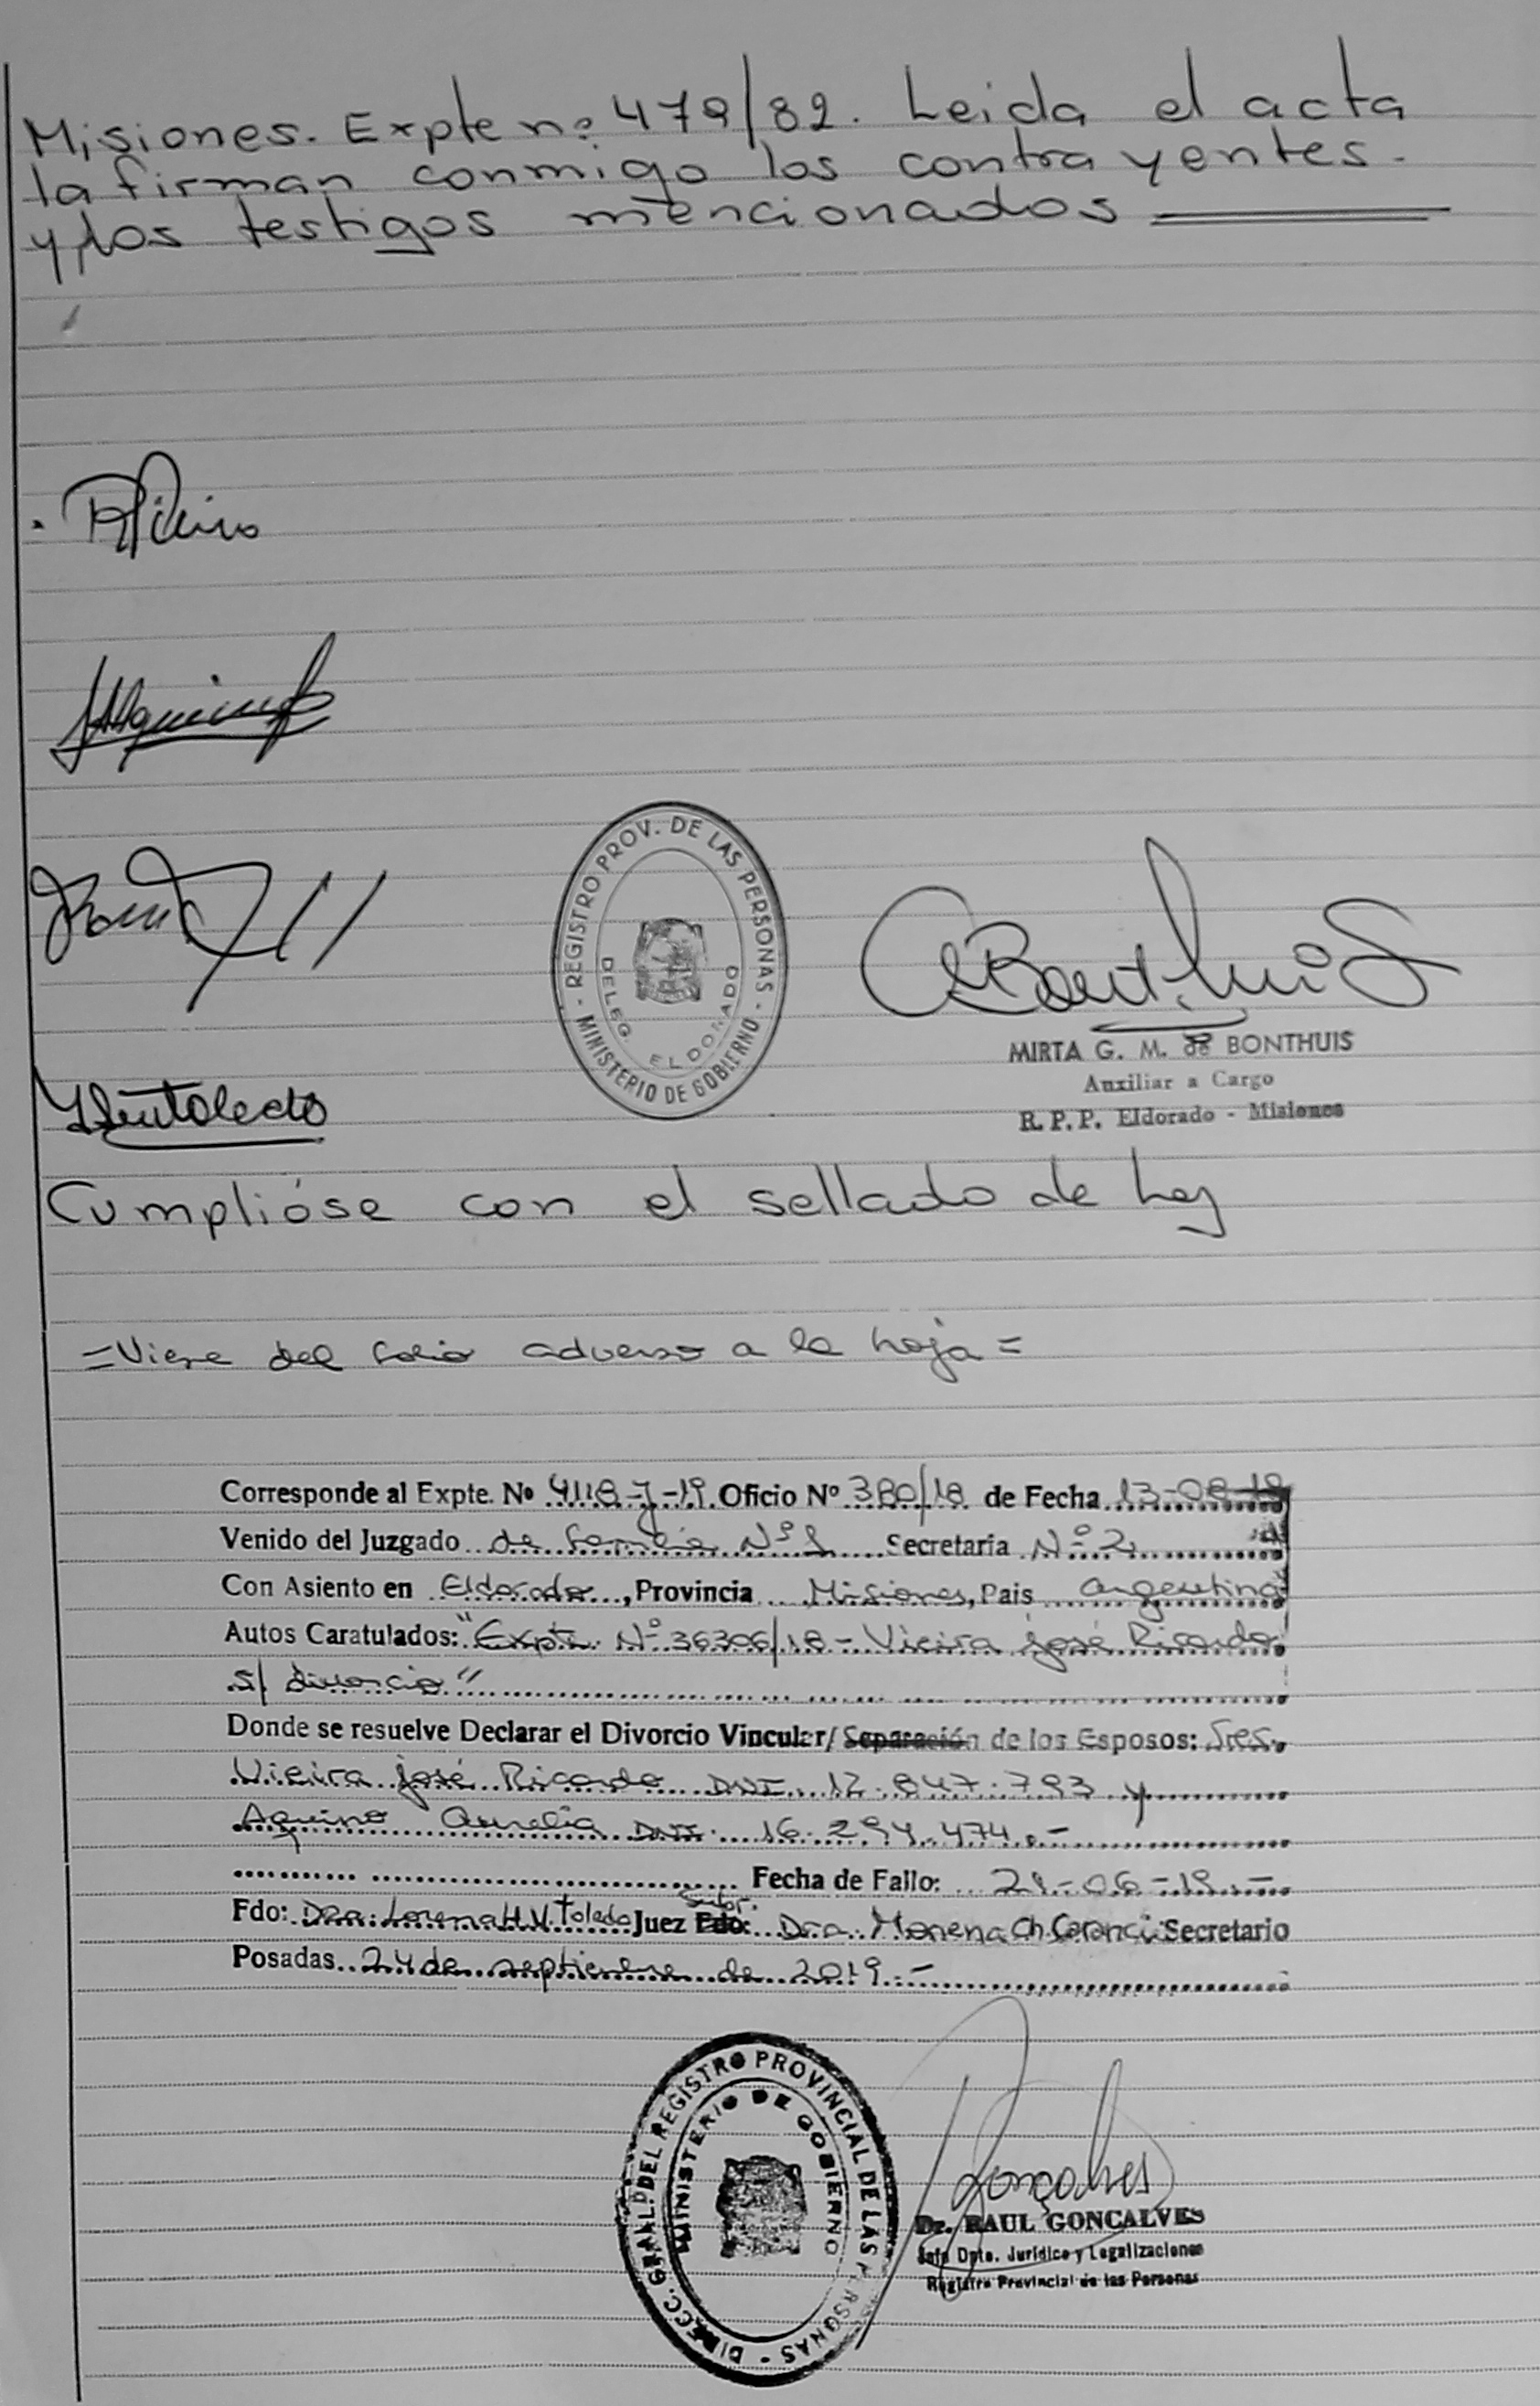 Misiones. Expte nº 479/82. Leida el acta
la firman conmigo los contrayentes.
y los testigos mencionados
REGISTRO PROV. DE LAS PERSONAS - MINISTERIO DE GOBIERNO -
DELEG. ELDORADO
MIRTA G. M. de BONTHUIS
Auxiliar a Cargo
R. P. P. Eldorado - Misiones
Cumplióse con el sellado de Ley
=Viene del folio adverso a la hoja=
Corresponde al Expte. Nº 4118-J-19 Oficio Nº 380/18 de Fecha 13-08-19
Venido del Juzgado de Familia Nº 1 Secretaría Nº 2
Con Asiento en Eldorado, Provincia Misiones, País Argentina
Autos Caratulados: "Expte. Nº 36306/18 - Vieira José Ricardo
s/ divorcio"
Donde se resuelve Declarar el Divorcio Vincular/ Separación de los Esposos: Sres.
Vieira José Ricardo DNI 12.847.793 y
Aquino Aurelia DNI 16.294.474.-
Fecha de Fallo: 24-06-19.-
Fdo: Dra. Lorena H. V. Toledo Juez Subr. Fdo: Dra. Morena Ch. Caranci Secretario
Posadas 24 de septiembre de 2019.-
DIRECC. GRAL. DEL REGISTRO PROVINCIAL DE LAS PERSONAS -
MINISTERIO DE GOBIERNO
Dr. RAUL GONCALVES
Jefe Dpto. Jurídico y Legalizaciones
Registro Provincial de las Personas